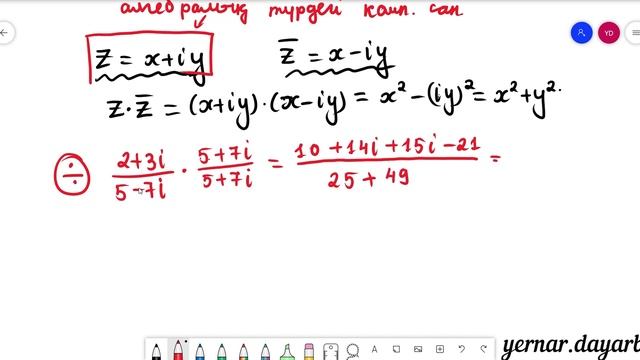 алгебралық түрдегі комп. сан
z = x+iy    z̅ = x−iy
z·z̅ = (x+iy)·(x−iy) = x² − (iy)² = x² + y².
÷ (2+3i)/(5−7i) · (5+7i)/(5+7i) = (10+14i+15i−21)/(25+49) =
yernar.dayarb